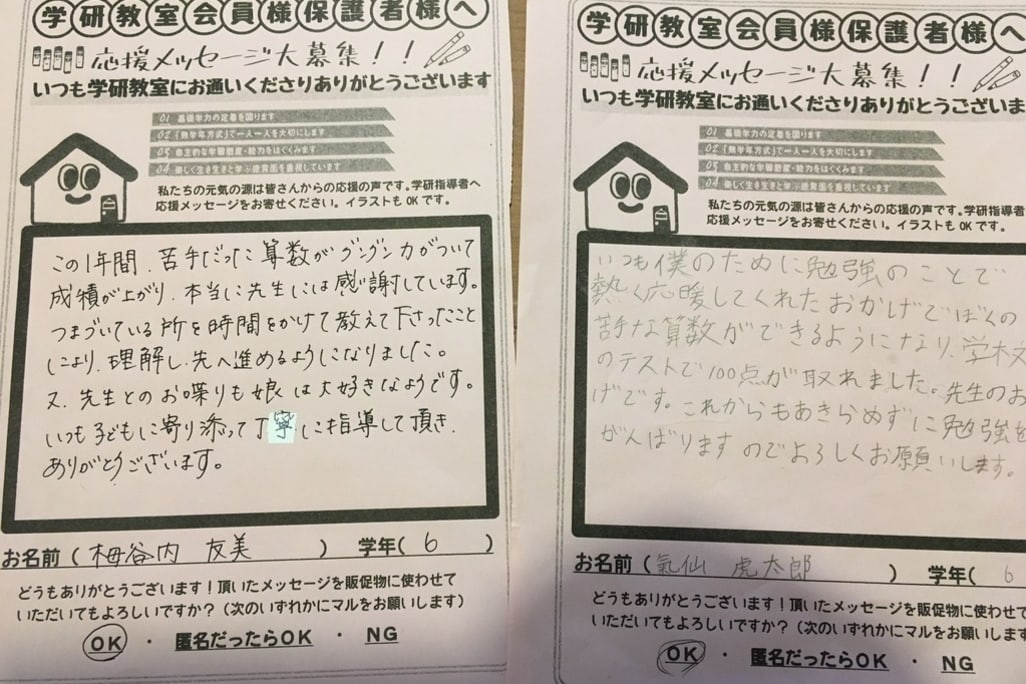 学研教室会員様保護者様へ
応援メッセージ大募集！！
いつも学研教室にお通いくださりありがとうございます
01 基礎学力の定着を図ります
02 「無学年方式」で一人一人を大切にします
03 自主的な学習態度・能力をはぐくみます
04 楽しく生き生きと学ぶ徳育面を重視しています
私たちの元気の源は皆さんからの応援の声です。学研指導者へ
応援メッセージをお寄せください。イラストもOKです。
この1年間、苦手だった算数がグングン力がついて
成績が上がり、本当に先生には感謝しています。
つまづいている所を時間をかけて教えて下さったこと
により、理解し、先へ進めるようになりました。
又、先生とのお喋りも娘は大好きなようです。
いつも子どもに寄り添って丁寧に指導して頂き、
ありがとうございます。
お名前（栂谷内 友美）学年（6）
どうもありがとうございます！頂いたメッセージを販促物に使わせて
いただいてもよろしいですか？（次のいずれかにマルをお願いします）
OK ・ 匿名だったらOK ・ NG
学研教室会員様保護者様へ
応援メッセージ大募集！！
いつも学研教室にお通いくださりありがとうございま
01 基礎学力の定着を図ります
02 「無学年方式」で一人一人を大切にします
03 自主的な学習態度・能力をはぐくみます
04 楽しく生き生きと学ぶ徳育面を重視しています
私たちの元気の源は皆さんからの応援の声です。学研指導者
応援メッセージをお寄せください。イラストもOKです。
いつも僕のために勉強のことで
熱く応暖してくれたおかげでぼくの
苦手な算数ができるようになり、学校
のテストで100点が取れました。先生のお
げです。これからもあきらめずに勉強を
がんばりますのでよろしくお願いします。
お名前（氣仙 虎太郎）学年（6
どうもありがとうございます！頂いたメッセージを販促物に使わせて
いただいてもよろしいですか？（次のいずれかにマルをお願いしま
OK ・ 匿名だったらOK ・ NG